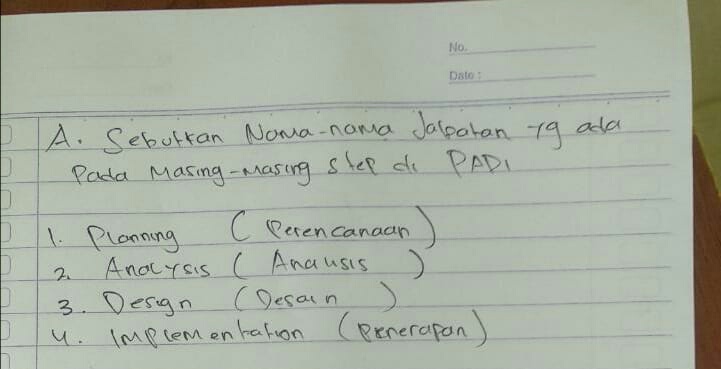 No.
Date :
A. Sebutkan Nama-nama Jabatan yg ada
Pada Masing-masing step di PADI
1. Planning (Perencanaan)
2. Analysis (Analisis)
3. Design (Desain)
4. Implementation (Penerapan)